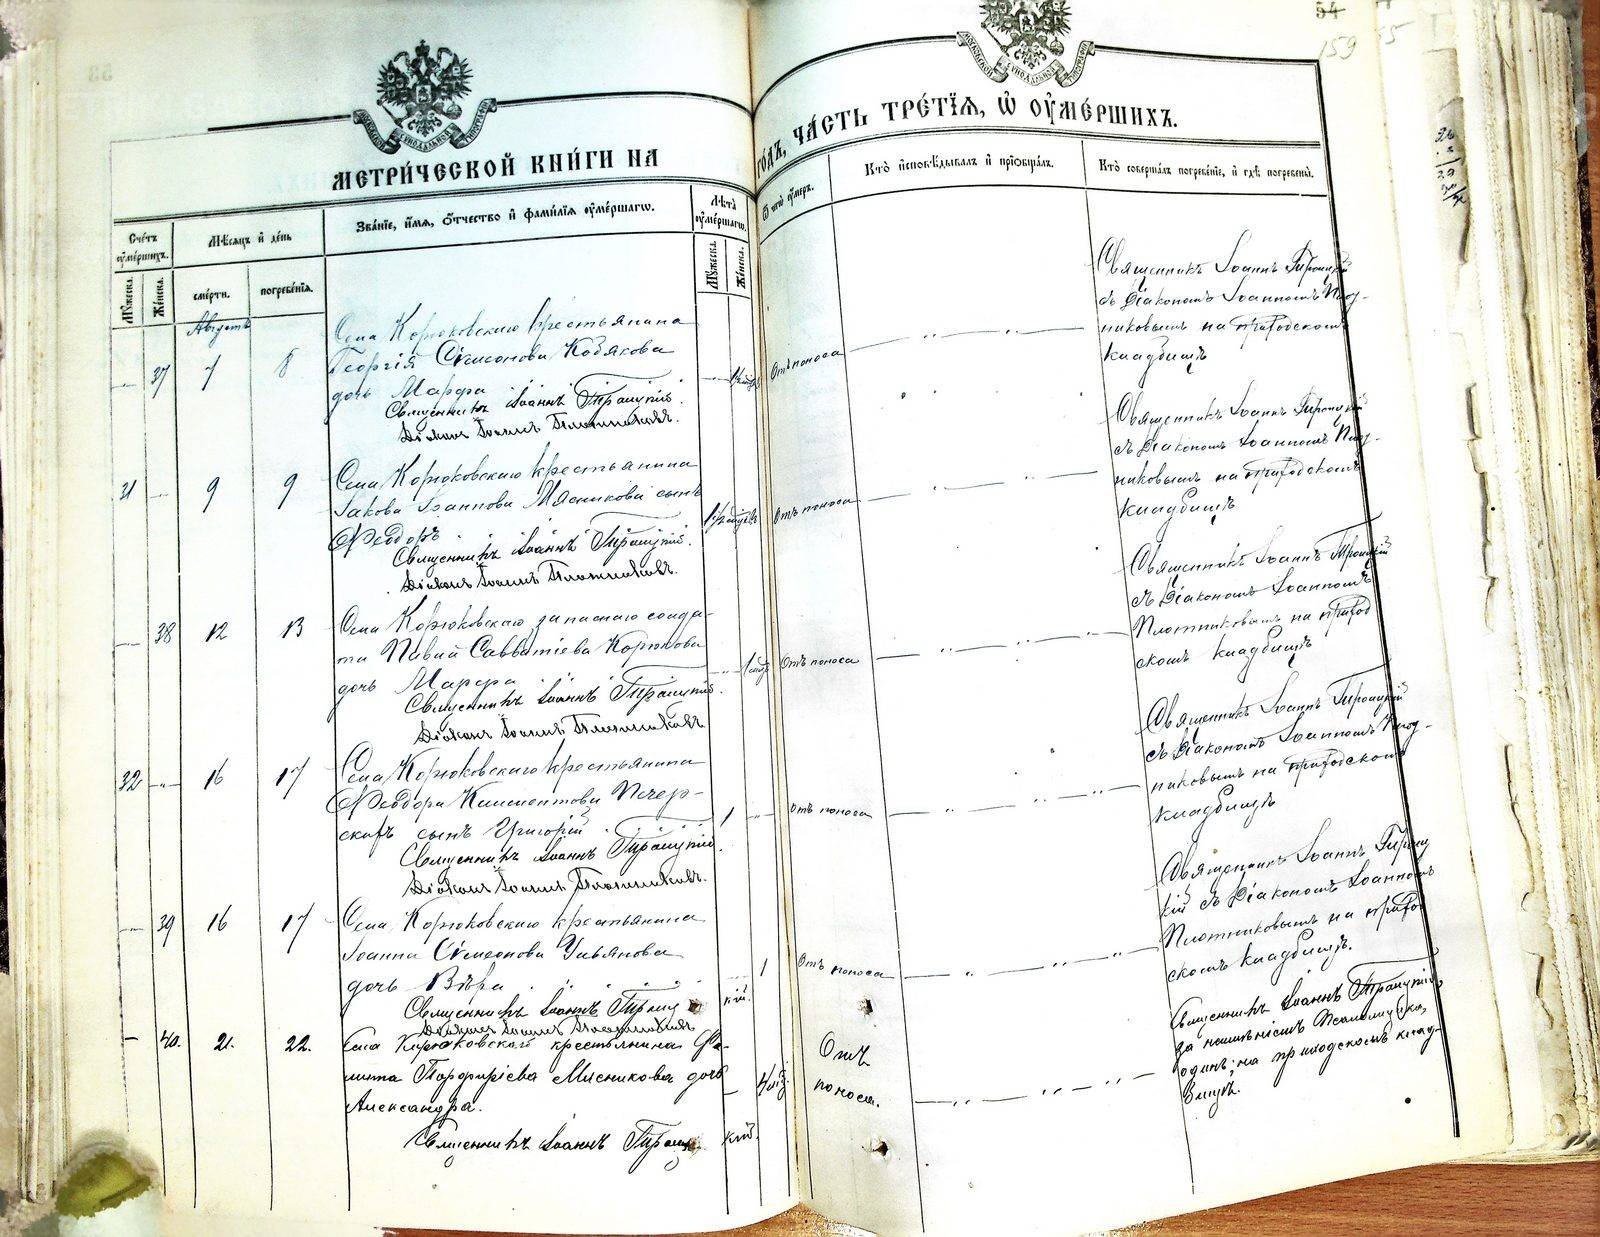 54
159
МЕТРИ́ЧЕСКОЙ КНИ́ГИ НА
ГО́ДЪ, ЧА́СТЬ ТРЕ́ТІѦ, Ѡ҆ ОУ҆МЕ́РШИХЪ.
МОСКОВСКОЙ СѴНОДАЛЬНОЙ ТИПОГРАФІИ
Сче́тъ оу҆ме́ршихъ.
Мꙋ́жеска.
Же́нска.
Мѣ́сѧцъ и҆ де́нь
сме́рти.
погребе́нїѧ.
Зва́нїе, и҆́мѧ, ѻ҆́тчество и҆ фами́лїѧ оу҆ме́ршагѡ.
Лѣ́та оу҆ме́ршагѡ.
Мꙋ́жеска.
Же́нска.
Ѿ чегѡ̀ оу҆́меръ.
Кто̀ и҆сповѣ́дывалъ и҆ прїѡбща́лъ.
Кто̀ соверша́лъ погребе́нїе, и҆ гдѣ̀ погребены̀.
Августъ
37 7 8
Села Корюковскаго крестьянина
Георгія Симеонова Кобякова
дочь Марфа
Священникъ Іоаннъ Троицкій.
Діаконъ Іоаннъ Плотниковъ.
Отъ поноса
Священникъ Іоаннъ Троицкій
съ Діакономъ Іоанномъ Плот-
никовымъ на приходскомъ
кладбищѣ
31 9 9
Села Корюковскаго крестьянина
Іакова Іоаннова Мясникова сынъ
Ѳеодоръ
Священникъ Іоаннъ Троицкій.
Діаконъ Іоаннъ Плотниковъ.
Отъ поноса
Священникъ Іоаннъ Троицкій
съ Діакономъ Іоанномъ Плот-
никовымъ на приходскомъ
кладбищѣ
38 12 13
Села Корюковскаго запаснаго солда-
та Павла Савватіева Корюкова
дочь Марфа
Священникъ Іоаннъ Троицкій
Діаконъ Іоаннъ Плотниковъ
Отъ поноса
Священникъ Іоаннъ Троицкій
съ Діакономъ Іоанномъ
Плотниковымъ на приход
скомъ кладбищѣ
32 16 17
Села Корюковскаго крестьянина
Ѳеодора Климентова Печер-
скаго сынъ Григорій
Священникъ Іоаннъ Троицкій.
Діаконъ Іоаннъ Плотниковъ.
1
отъ поноса
Священникъ Іоаннъ Троицкій
съ Діакономъ Іоанномъ Плот-
никовымъ на приходскомъ
кладбищѣ
39 16 17
Села Корюковскаго крестьянина
Іоанна Симеонова Ульянова
дочь Вѣра
Священникъ Іоаннъ Троицкій.
Діаконъ Іоаннъ Плотниковъ
1
Отъ поноса
Священникъ Іоаннъ Троиц
кій съ Діакономъ Іоанномъ
Плотниковымъ на прихо
скомъ кладбищѣ.
40. 21. 22.
Села Корюковскаго крестьянина
Порфиріева Мясникова дочь
Александра.
Священникъ Іоаннъ Троицкій.
Отъ
поноса.
Священникъ Іоаннъ Троицкій,
за неимѣніемъ Псаломщика,
одинъ; на приходскомъ клад-
бищѣ.